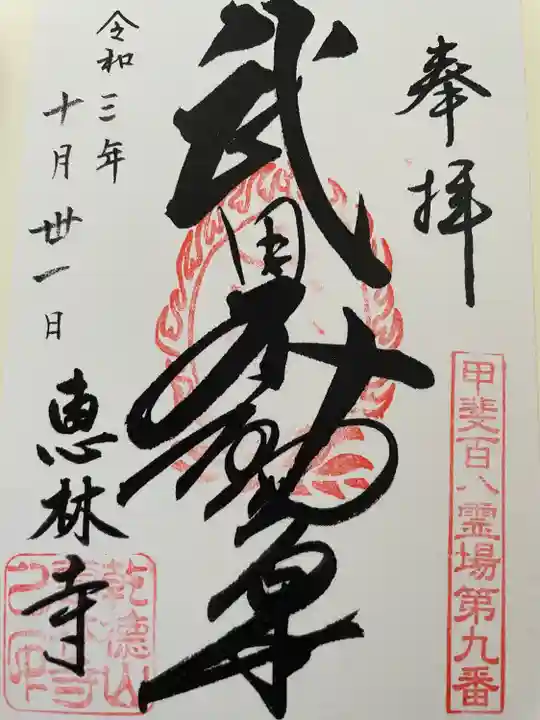 奉拝
甲斐百八霊場第九番
武田不動尊
令和三年
十月丗一日
恵林寺
乾徳山